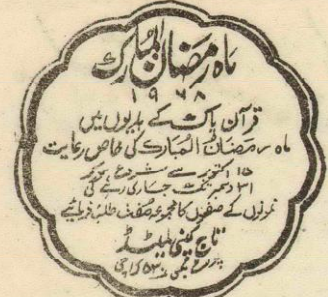 ماہ رمضان المبارک
۱۹۶۸
قرآن پاک کے ہدیوں میں
ماہ رمضان المبارک کی خاص رعایت
۱۵ اکتوبر سے شروع ہو کر
۳۱ دسمبر تک جاری رہے گی
نمونوں کے صفحوں کا مجموعہ مفت طلب فرمائیے
تاج کمپنی لمیٹڈ
پوسٹ بکس ۵۳۰ کراچی